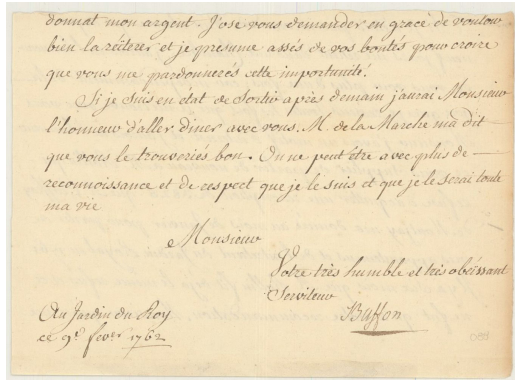 donnat mon argent. J'ose vous demander en grace de vouloir
bien la réiterer et je présume assés de vos bontés pour croire
que vous me pardonnerés cette importunité.
Si je suis en état de Sortir après demain j'aurai Monsieur
l'honneur d'aller diner avec vous, M. de la Marche m'a dit
que vous le trouveriés bon. On ne peut être avec plus de
reconnoissance et de respect que je le suis et que je le serai toute
ma vie
Monsieur
Votre très humble et très obéissant
Serviteur
Buffon
Au Jardin du Roy
ce 9e fevr. 1762